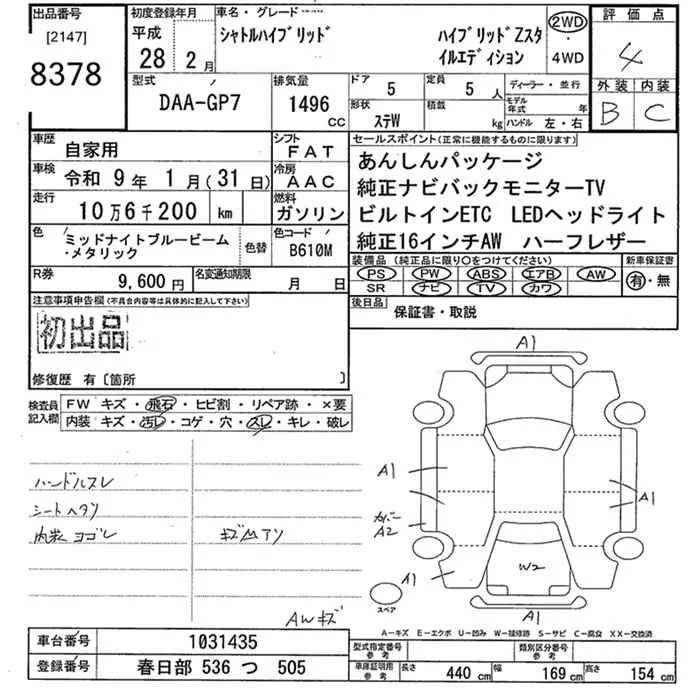 出品番号
[2147]
8378
初度登録年月
平成
28 2月
車名・グレード
シャトルハイブリッド ハイブリッドZスタ
イルエディション
2WD
・
4WD
評価点
4
外装 内装
B C
型式
DAA-GP7
排気量
1496
CC
ドア
5
定員
5人
形状
ステW
積載
kg
ディーラー・並行
モデル年式 年
ハンドル 左・右
車歴
自家用
シフト
FAT
車検
令和 9年 1月(31日)
冷房
AAC
走行
10万6千200 km
燃料
ガソリン
色
ミッドナイトブルービーム
・メタリック
色替
色コード
B610M
R券
9,600円
名変通知期限
月 日
セールスポイント(正常に機能するものに限ります)
あんしんパッケージ
純正ナビバックモニターTV
ビルトインETC LEDヘッドライト
純正16インチAW ハーフレザー
装備品(純正品に限り○をつけてください)
PS PW ABS エアB AW
SR ナビ TV カワ
新車保証書
有・無
後日品
保証書・取説
注意事項申告欄(不具合内容等は具体的に記入して下さい)
初出品
修復歴 有〔箇所 〕
検査員
記入欄
FW キズ・飛石・ヒビ割・リペア跡・×要
内装 キズ・汚レ・コゲ・穴・スレ・キレ・破レ
ハンドルスレ
シートヘタリ
内装ヨゴレ
キズ凹アリ
AWキズ
A1
A1
A1
カバー
A2
A1
W2
A1
スペア
A-キズ E-エクボ U-凹み W-補修跡 S-サビ C-腐食 XX-交換済
車台番号
1031435
登録番号
春日部 536 つ 505
型式指定番号
参考
類別区分番号
参考
車庫証明用
参考
長さ 440 cm 幅 169 cm 高さ 154 cm